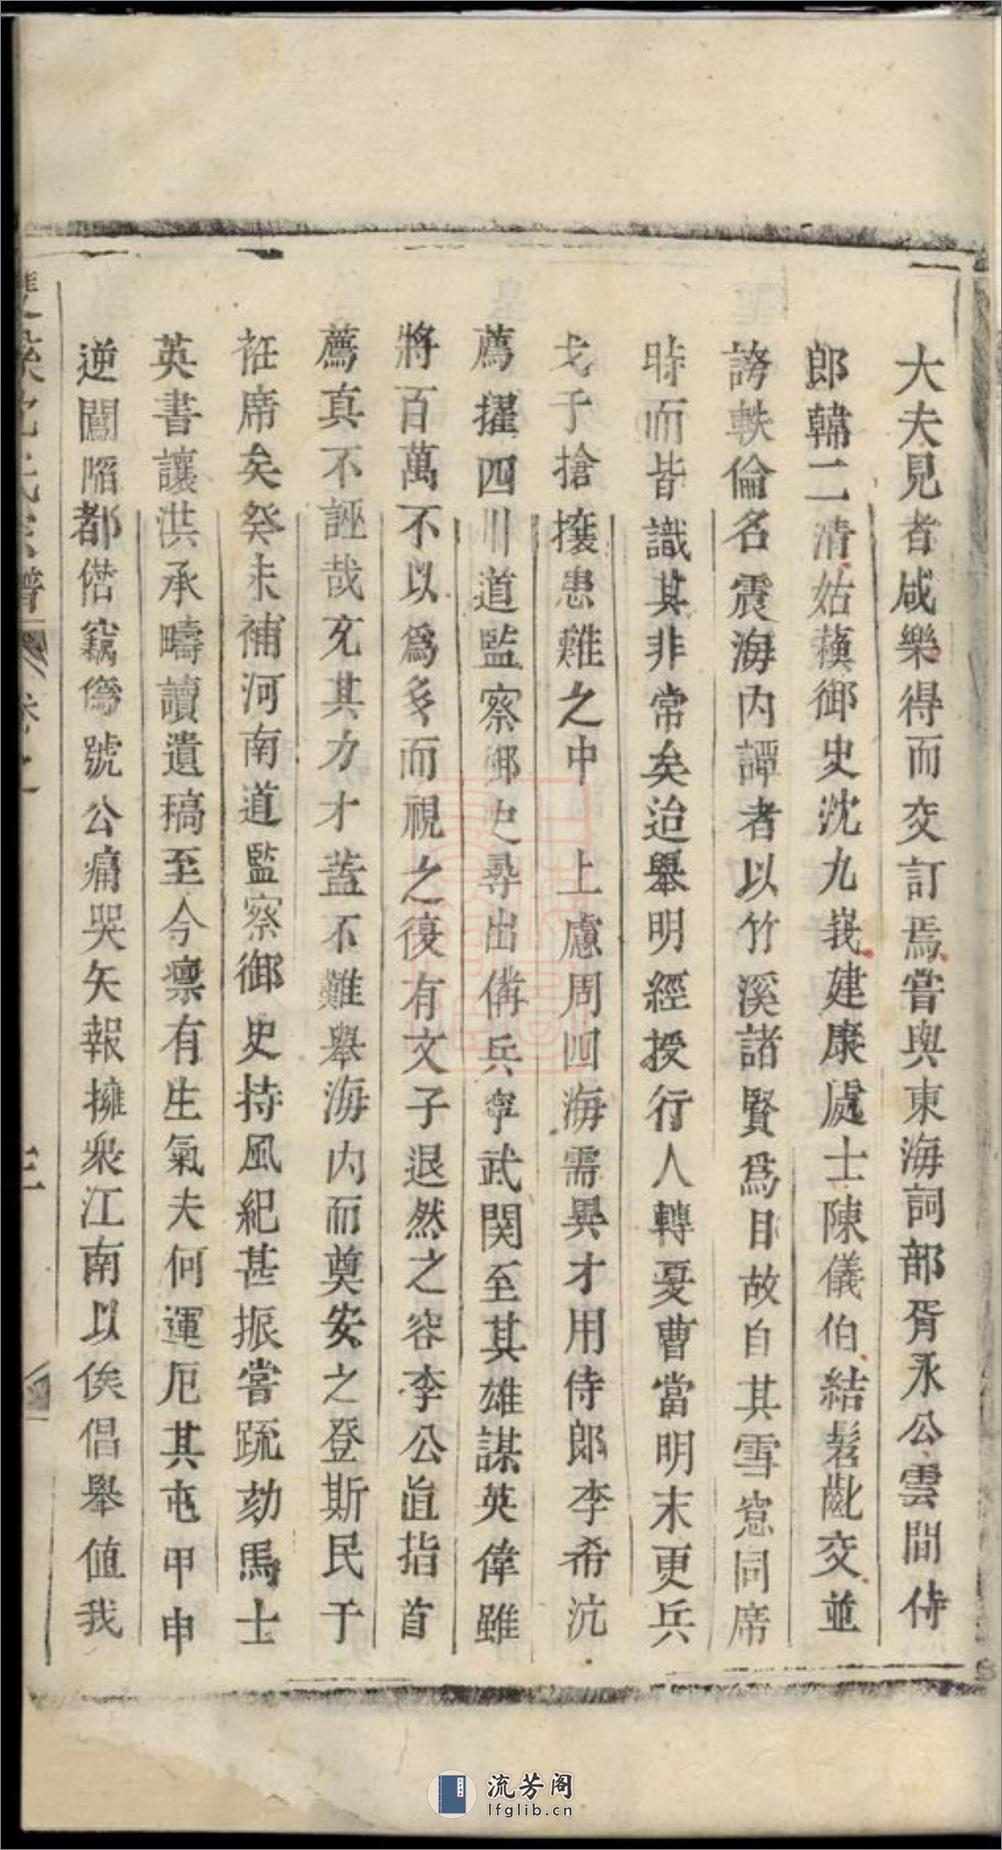 大夫見者咸樂得而交訂焉嘗與東海詞部胥永公雲間侍
郎韓二清姑蘓御史沈九峩建康處士陳儀伯結髫齔交並
謗軼倫名震海內譚者以竹溪諸賢爲目故自其雪窓同席
時而皆識其非常矣迨舉明經授行人轉憂曹當明末更兵
戈子搶攘患難之中　上慮周四海需異才用侍郎李希沆
薦擢四川道監察御史尋出備兵寧武関至其雄謀英偉雖
將百萬不以爲多而視之復有文子退然之容李公直指首
薦真不誣哉充其力才蓋不難舉海内而奠安之登斯民于
袵席矣癸未補河南道監察御史持風紀甚振嘗疏劾馬士
英書讓洪承疇讀遺稿至今凛有生氣夫何運厄其屯甲申
逆闖陷都偕竊僞號公痛哭矢報擁衆江南以俟倡舉值我
沈氏宗譜
卷之
三
流芳阁
lfglib.cn